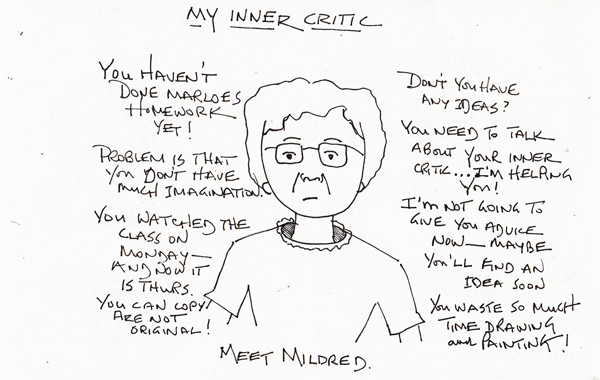 MY INNER CRITIC
YOU HAVEN'T
DONE MARLOES
HOMEWORK
YET!
PROBLEM IS THAT
YOU DON'T HAVE
MUCH IMAGINATION.
YOU WATCHED THE
CLASS ON
MONDAY—
AND NOW IT
IS THURS.
YOU CAN COPY
ARE NOT
ORIGINAL!
DON'T YOU HAVE
ANY IDEAS?
YOU NEED TO TALK
ABOUT YOUR INNER
CRITIC...I'M HELPING
YOU!
I'M NOT GOING TO
GIVE YOU ADVICE
NOW—MAYBE
YOU'LL FIND AN
IDEA SOON
YOU WASTE SO MUCH
TIME DRAWING
and PAINTING!
MEET MILDRED.